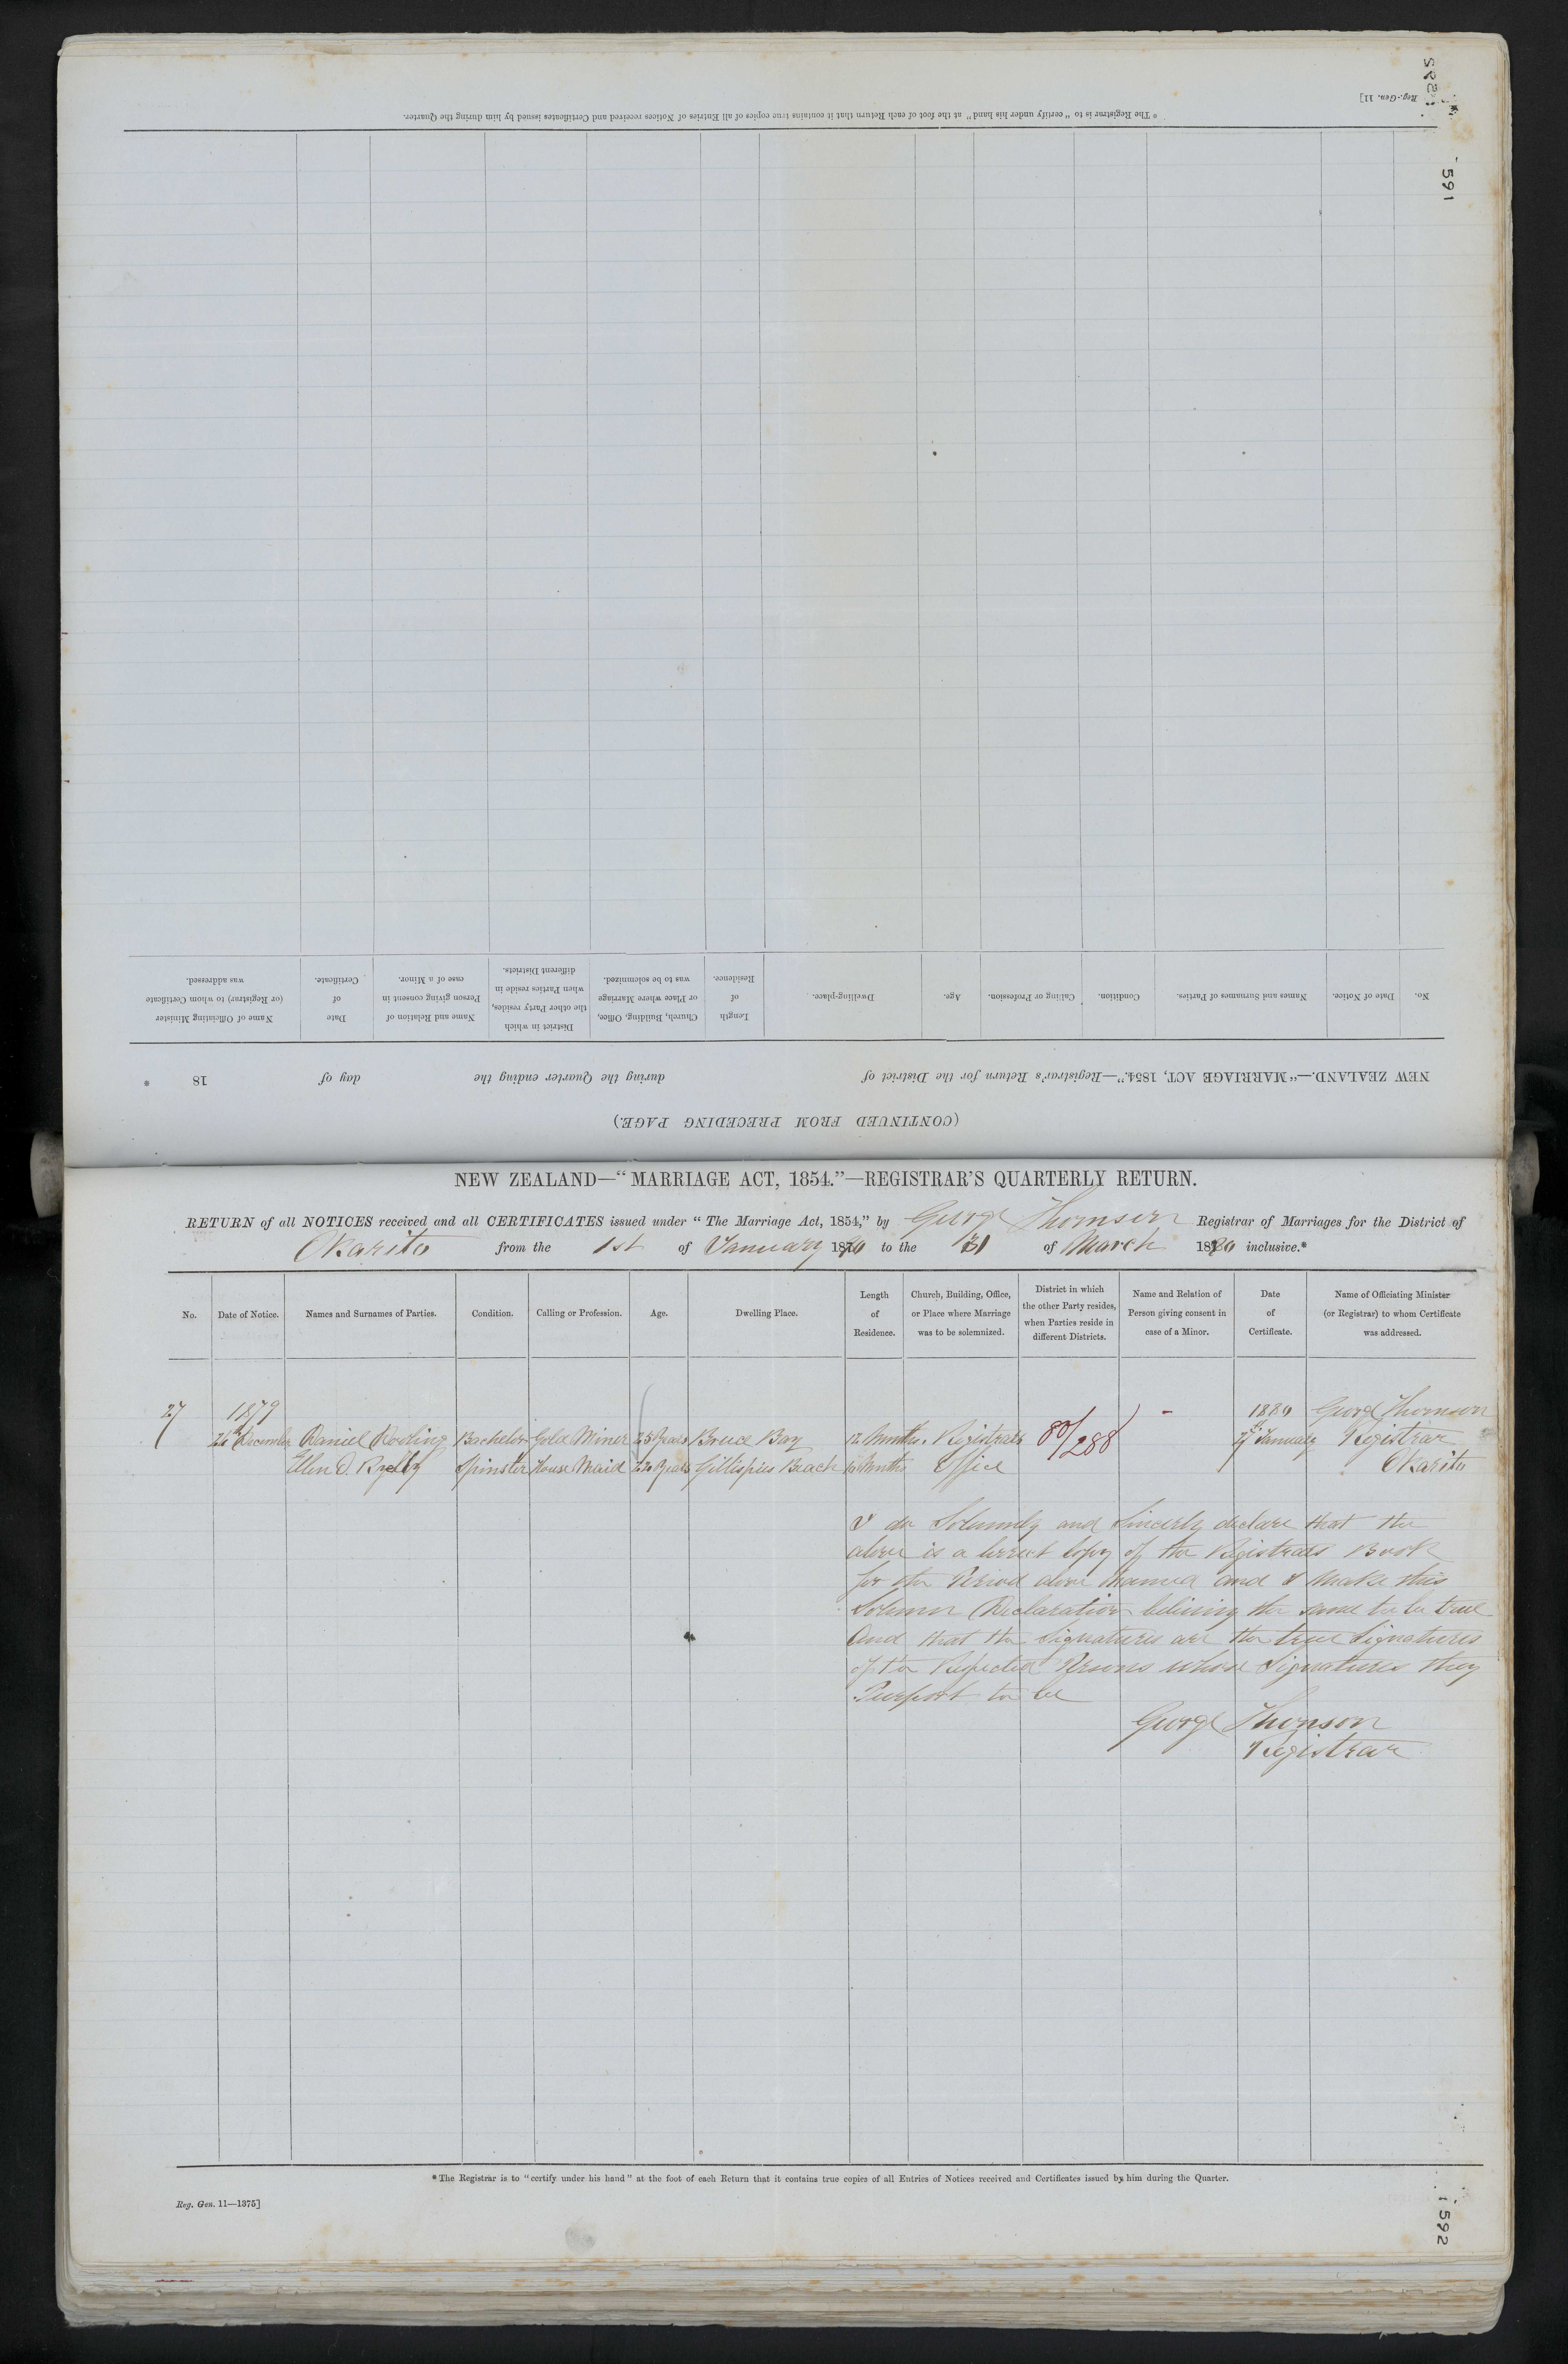 Reg.-Gen. 11]
591
* The Registrar is to "certify under his hand" at the foot of each Return that it contains true copies of all Entries of Notices received and Certificates issued by him during the Quarter.
No. Date of Notice. Names and Surnames of Parties. Condition. Calling or Profession. Age. Dwelling-place. Length of Residence. Church, Building, Office, or Place where Marriage was to be solemnized. District in which the other Party resides, when Parties reside in different Districts. Name and Relation of Person giving consent in case of a Minor. Date of Certificate. Name of Officiating Minister (or Registrar) to whom Certificate was addressed.
NEW ZEALAND.—"MARRIAGE ACT, 1854."—Registrar's Return for the District of during the Quarter ending the day of 18 *
(CONTINUED FROM PRECEDING PAGE.)
NEW ZEALAND—"MARRIAGE ACT, 1854."—REGISTRAR'S QUARTERLY RETURN.
RETURN of all NOTICES received and all CERTIFICATES issued under "The Marriage Act, 1854," by George Thomson Registrar of Marriages for the District of
Okarito from the 1st of January 1880 to the 31 of March 1880 inclusive.*
No. Date of Notice. Names and Surnames of Parties. Condition. Calling or Profession. Age. Dwelling Place. Length of Residence. Church, Building, Office, or Place where Marriage was to be solemnized. District in which the other Party resides, when Parties reside in different Districts. Name and Relation of Person giving consent in case of a Minor. Date of Certificate. Name of Officiating Minister (or Registrar) to whom Certificate was addressed.
27 1879 1880 George Thomson
December Daniel Bachelor Gold Miner 25 Years Bruce Bay 12 Months Registrars 80/288 - January Registrar
Ellen O. Spinster House Maid 22 Years Gillispies Beach Months Office Okarito
I do Solemnly and Sincerly declare that the
above is a correct copy of the Registrars Book
for the Period above Named and I Make this
Solemn Declaration beliving the same to be true
And that the Signatures are the true Signatures
of the Respected Persons whose Signatures they
Purport to be
George Thomson
Registrar
* The Registrar is to "certify under his hand" at the foot of each Return that it contains true copies of all Entries of Notices received and Certificates issued by him during the Quarter.
Reg. Gen. 11—1375]
1592